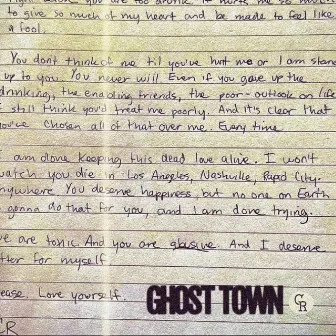 to give so much of my heart and be made to feel like
a fool.
You dont think of me til you've hurt me or I am stand
up to you. You never will. Even if you gave up the
drinking, the enabling friends, the poor-outlook on life
I still think you'd treat me poorly. And it's clear that
you've chosen all of that over me. Every time
I am done keeping this dead love alive. I won't
watch you die in Los Angeles, Nashville, Rapid City-
anywhere. You deserve happiness, but no one on Earth
gonna do that for you, and I am done trying.
we are toxic. And you are abusive. And I deserve
tter for myself
ease. Love yourself.
GHOST TOWN
CR
CR